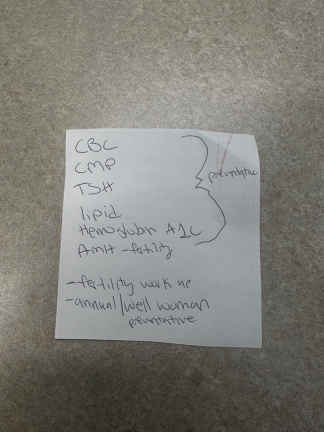 CBC
CMP
TSH
lipid
Hemoglobin A1C
preventative
AMH - fertility
- fertility work up
- annual/well woman
preventative